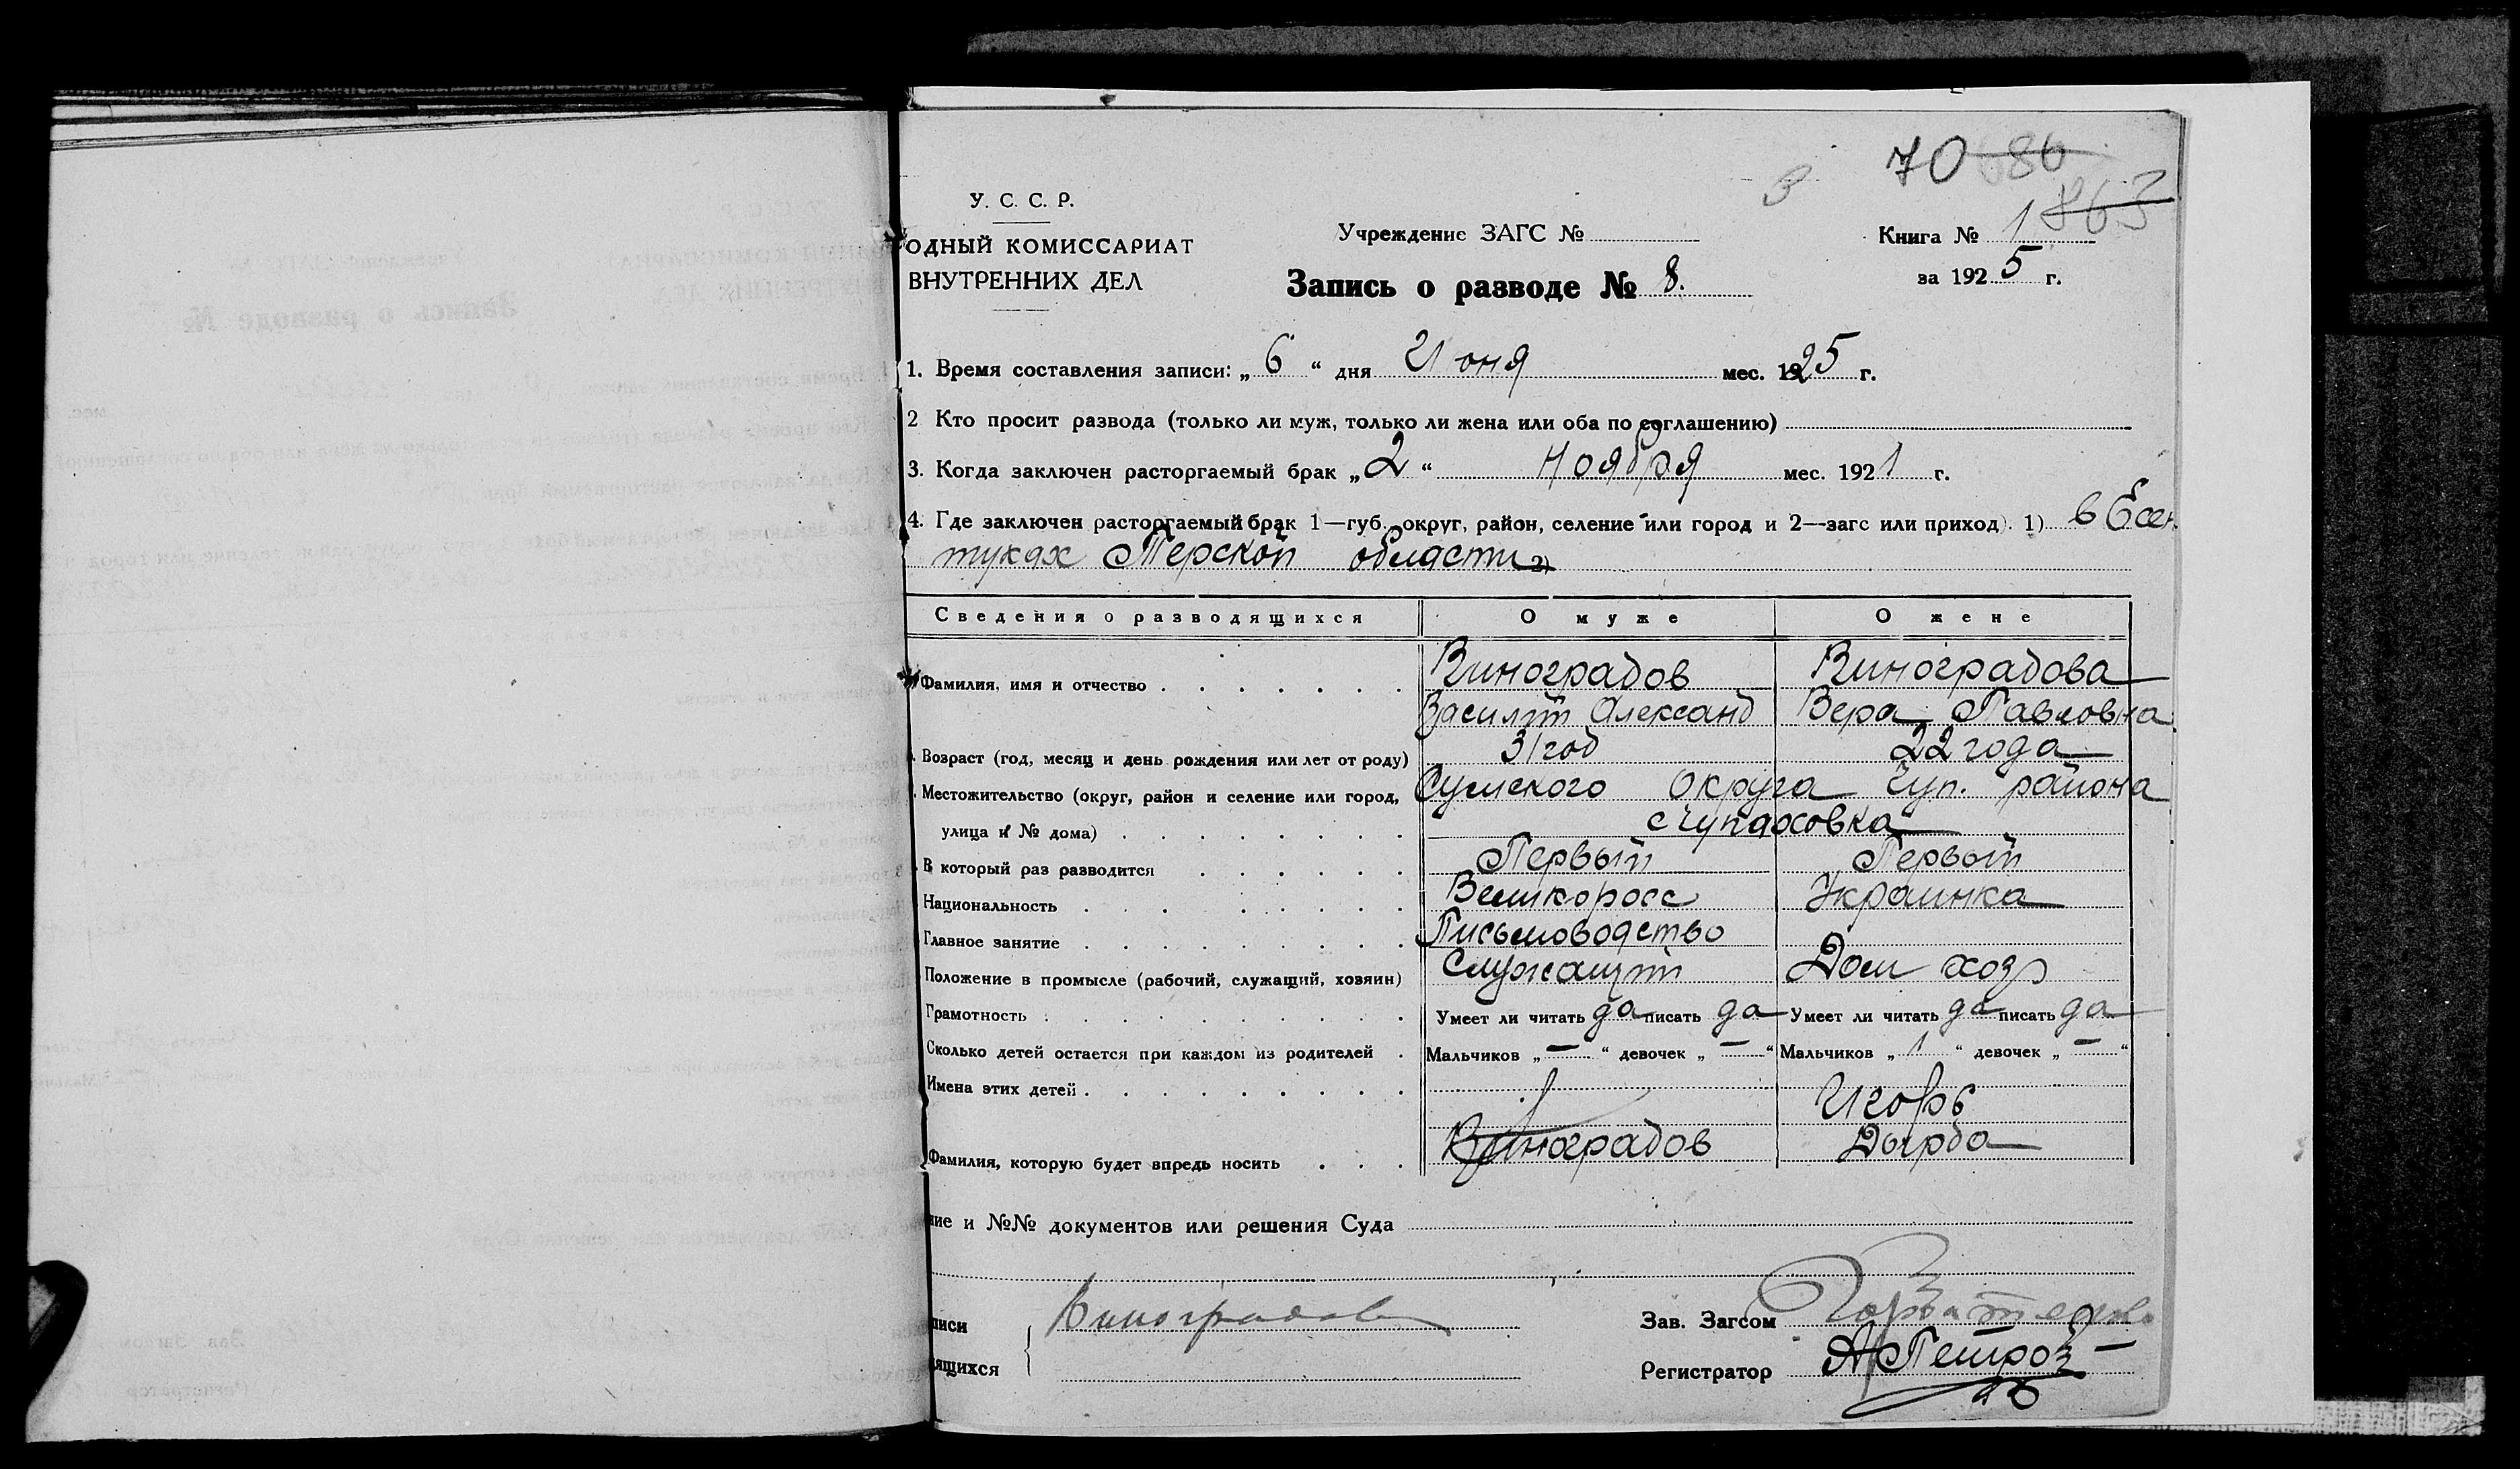 70 86
863
У. С. С. Р.
ОДНЫЙ КОМИССАРИАТ
ВНУТРЕННИХ ДЕЛ
Учреждение ЗАГС №
Книга № 1
Запись о разводе № 8.
за 1925 г.
1. Время составления записи: „ 6 “ дня Июня мес. 1925 г.
2 Кто просит развода (только ли муж, только ли жена или оба по соглашению)
3. Когда заключен расторгаемый брак „ 2 “ Ноября мес. 1921 г.
4. Где заключен расторгаемый брак 1—губ. округ, район, селение или город и 2—загс или приход). 1) в Ессен
туках Терской области 2)
Сведения о разводящихся О муже О жене
Фамилия, имя и отчество Виноградов Виноградова
Василий Александ Вера Павловна
Возраст (год, месяц и день рождения или лет от роду) 31 год 22 года
Местожительство (округ, район и селение или город, Сумского Округа Чуп. района
улица и № дома) с Чупаховка
В который раз разводится Первый Первый
Национальность Великоросс Украинка
Главное занятие Письмоводство
Положение в промысле (рабочий, служащий, хозяин) Служащий Дом хоз
Грамотность Умеет ли читать да писать да Умеет ли читать да писать да
Сколько детей остается при каждом из родителей Мальчиков „ — “ девочек „ — “ Мальчиков „ 1 “ девочек „ — “
Имена этих детей Игорь
Фамилия, которую будет впредь носить Виноградов Дырба
ние и №№ документов или решения Суда
писи Виноградов Зав. Загсом
ящихся Регистратор Петроз